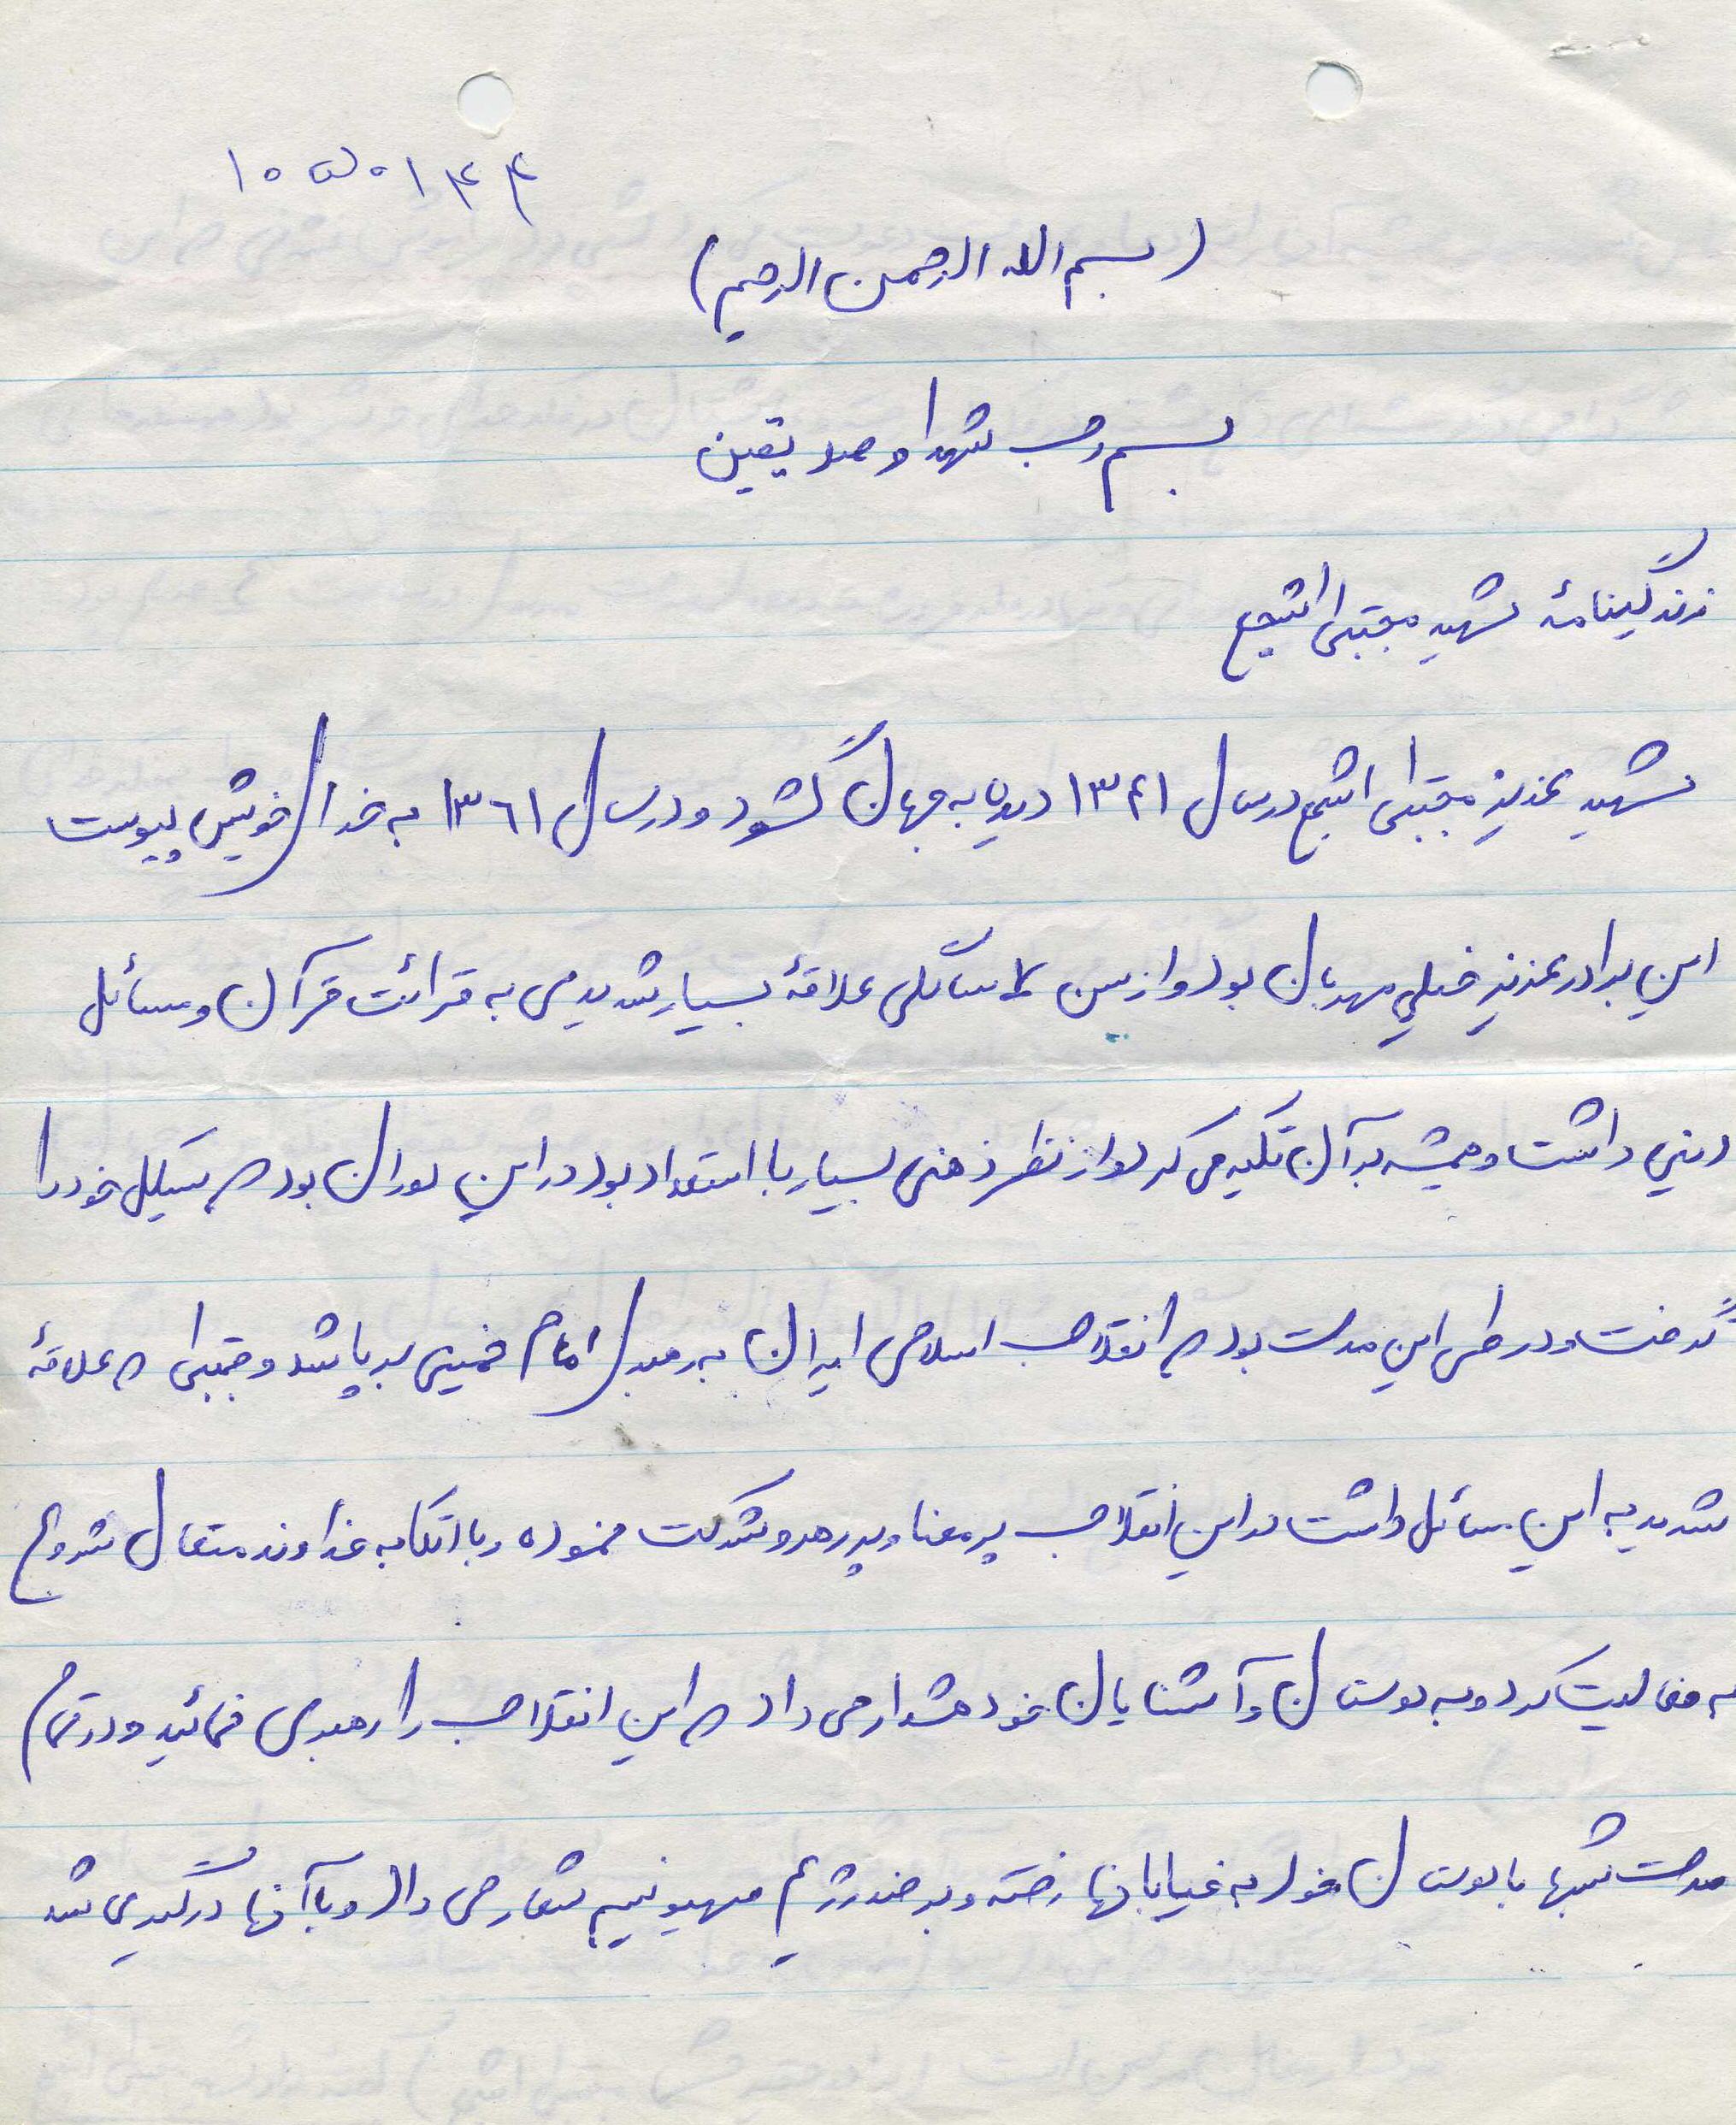 ۱۰۵۰۱۴۴
(بسم الله الرحمن الرحیم)
بسم رب شهدا و صدیقین
زندگینامهٔ شهید مجتبی اشجع
شهید عزیز مجتبی اشجع در سال ۱۳۴۱ دیده به جهان گشود و در سال ۱۳۶۱ به خدای خویش پیوست
این برادر عزیز خیلی مهربان بود و از سن ۷ سالگی علاقهٔ بسیار شدیدی به قرائت قرآن و مسائل
دینی داشت و همیشه به آن تکیه می کرد و از نظر ذهنی بسیار با استعداد بود در این دوران بود که سیکل خود را
گرفت و در طی این مدت بود که انقلاب اسلامی ایران به رهبری امام خمینی برپا شد و مجتبی که علاقهٔ
شدید به این مسائل داشت در این انقلاب پر معنا و پر رهرو شرکت نموده و با اتکا به خداوند متعال شروع
به فعالیت کرد و به دوستان و آشنایان خود هشدار می داد که این انقلاب را رهبری فمائید و در تمام
مدت شبها با دوستان خود به خیابانها رفته و بر ضد رژیم صهیونیسم شعار می داد و با آنها درگیری شد